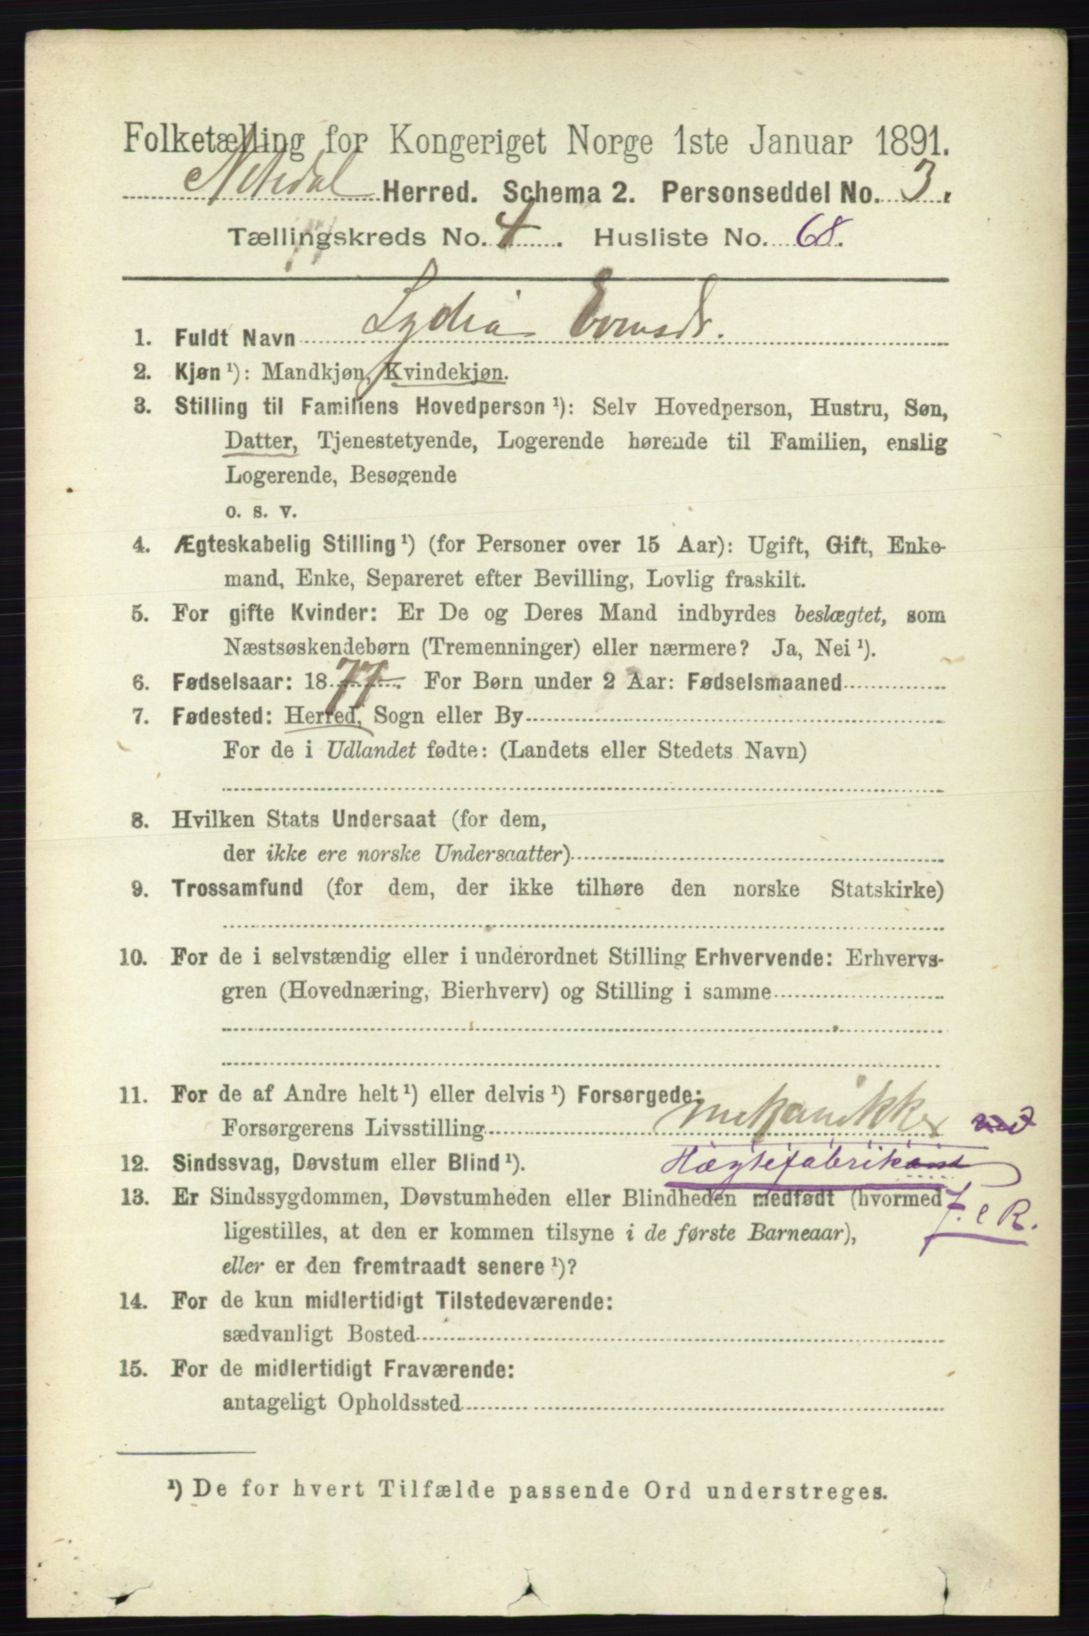 Folketælling for Kongeriget Norge 1ste Januar 1891.
Nitedal Herred. Schema 2. Personseddel No. 3.
Tællingskreds No. 4. Husliste No. 68.
1. Fuldt Navn Lydia
2. Kjøn ¹): Mandkjøn, Kvindekjøn.
3. Stilling til Familiens Hovedperson ¹): Selv Hovedperson, Hustru, Søn,
Datter, Tjenestetyende, Logerende hørende til Familien, enslig
Logerende, Besøgende
o. s. v.
4. Ægteskabelig Stilling ¹) (for Personer over 15 Aar): Ugift, Gift, Enke-
mand, Enke, Separeret efter Bevilling, Lovlig fraskilt.
5. For gifte Kvinder: Er De og Deres Mand indbyrdes beslægtet, som
Næstsøskendebørn (Tremenninger) eller nærmere? Ja, Nei ¹).
6. Fødselsaar: 1877. For Børn under 2 Aar: Fødselsmaaned
7. Fødested: Herred, Sogn eller By
For de i Udlandet fødte: (Landets eller Stedets Navn)
8. Hvilken Stats Undersaat (for dem,
der ikke ere norske Undersaatter)
9. Trossamfund (for dem, der ikke tilhøre den norske Statskirke)
10. For de i selvstændig eller i underordnet Stilling Erhvervende: Erhvervs-
gren (Hovednæring, Bierhverv) og Stilling i samme
11. For de af Andre helt ¹) eller delvis ¹) Forsørgede:
Forsørgerens Livsstilling mekanikker ved
12. Sindssvag, Døvstum eller Blind ¹). Hægtefabrikant
13. Er Sindssygdommen, Døvstumheden eller Blindheden medfødt (hvormed F. e R.
ligestilles, at den er kommen tilsyne i de første Barneaar),
eller er den fremtraadt senere ¹)?
14. For de kun midlertidigt Tilstedeværende:
sædvanligt Bosted
15. For de midlertidigt Fraværende:
antageligt Opholdssted
¹) De for hvert Tilfælde passende Ord understreges.